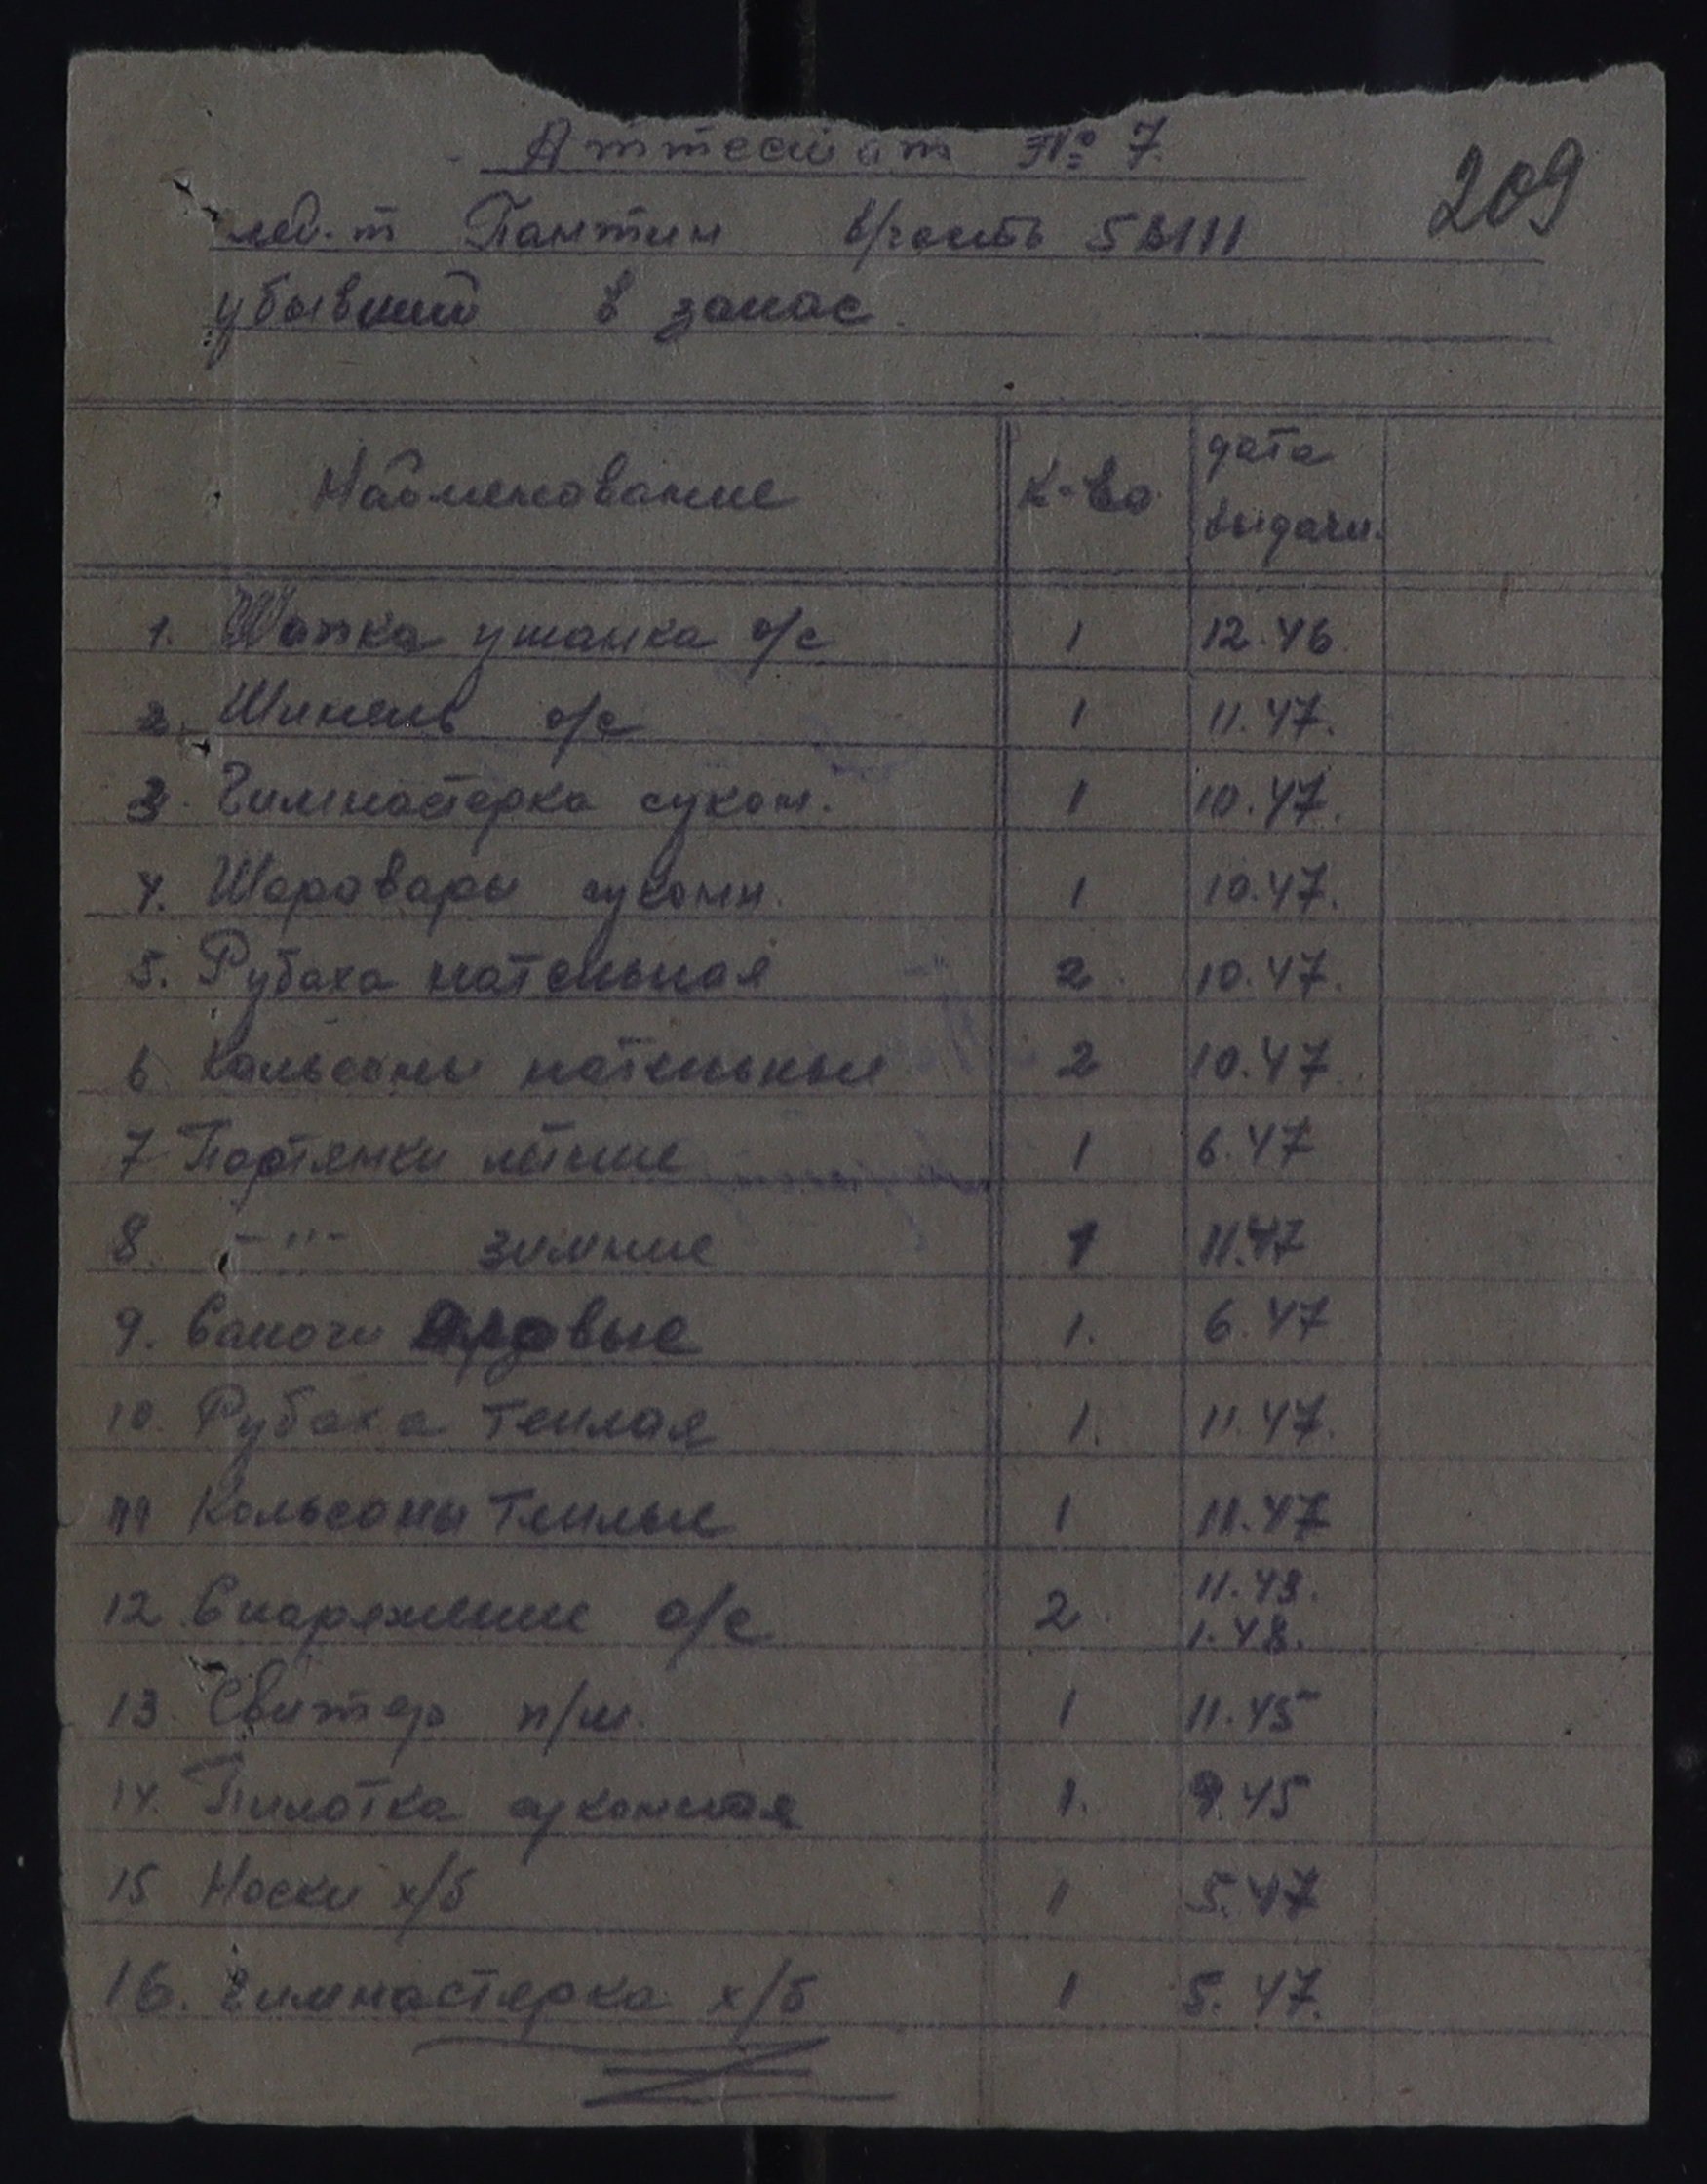 Аттестат № 7
209
Пантин в/часть
убывший в запас.
Наименование К-во дата выдачи.
1. Шапка ушанка о/с 1 12.46.
2. Шинель о/с 1 11.47.
3. Гимнастерка сукон. 1 10.47.
4. Шаровары суконн. 1 10.47.
5. Рубаха нательная 2 10.47.
6 Кальсоны нательные 2 10.47.
7 Портянки летние 1 6.47
8. -"- зимние 1 11.47
9. Сапоги 1. 6.47
10. Рубаха теплая 1. 11.47.
11 Кальсоны теплые 1 11.47
12 Снаряжение о/с 2 11.43. 1.48.
13. Свитер п/ш. 1 11.45
14. Пилотка суконная 1. 9.45
15 Носки х/б 1 5.47
16. Гимнастерка х/б 1 5.47.